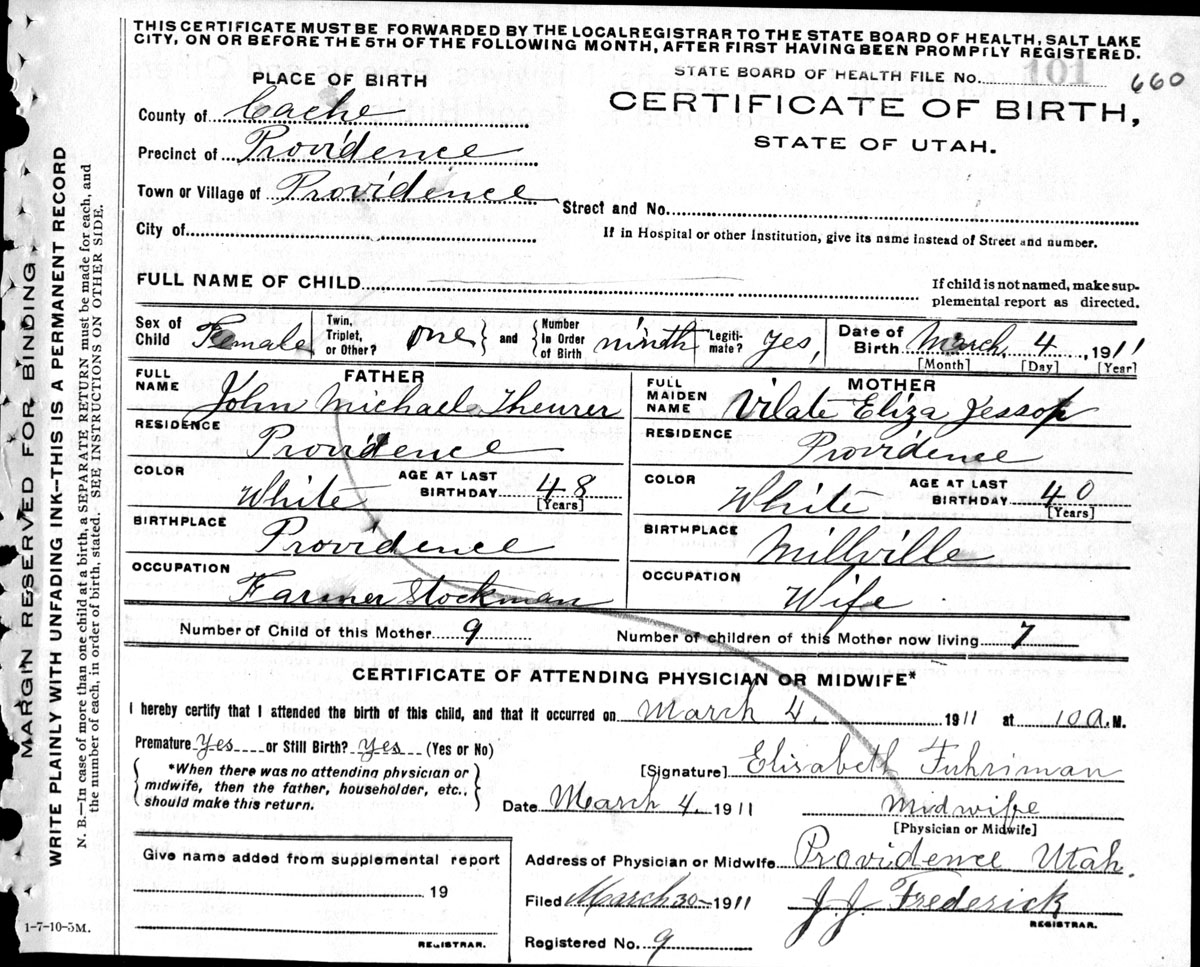 THIS CERTIFICATE MUST BE FORWARDED BY THE LOCAL REGISTRAR TO THE STATE BOARD OF HEALTH, SALT LAKE
CITY, ON OR BEFORE THE 5TH OF THE FOLLOWING MONTH, AFTER FIRST HAVING BEEN PROMPTLY REGISTERED.
STATE BOARD OF HEALTH FILE No. 101 660
PLACE OF BIRTH
CERTIFICATE OF BIRTH,
STATE OF UTAH.
County of Cache
Precinct of Providence
Town or Village of Providence
Street and No.
City of
If in Hospital or other Institution, give its name instead of Street and number.
FULL NAME OF CHILD
If child is not named, make sup-
plemental report as directed.
Sex of Child Female
Twin, Triplet, or Other? One } and { Number In Order of Birth ninth
Legiti-mate? Yes,
Date of Birth March 4, 1911
[Month] [Day] [Year]
FATHER
FULL NAME John Michael Theurer
RESIDENCE Providence
COLOR White
AGE AT LAST BIRTHDAY 48 [Years]
BIRTHPLACE Providence
OCCUPATION Farmer Stockman
MOTHER
FULL MAIDEN NAME Vilate Eliza Jessop
RESIDENCE Providence
COLOR White
AGE AT LAST BIRTHDAY 40 [Years]
BIRTHPLACE Millville
OCCUPATION Wife
Number of Child of this Mother 9
Number of children of this Mother now living 7
CERTIFICATE OF ATTENDING PHYSICIAN OR MIDWIFE*
I hereby certify that I attended the birth of this child, and that it occurred on March 4. 1911 at 10 A. M.
Premature Yes or Still Birth? Yes (Yes or No)
*When there was no attending physician or
midwife, then the father, householder, etc.,
should make this return.
[Signature] Elisabeth Fuhriman
Date March 4. 1911
Midwife
[Physician or Midwife]
Give name added from supplemental report
19
REGISTRAR.
Address of Physician or Midwife Providence Utah.
Filed March 30 1911
J. J. Frederick
REGISTRAR.
Registered No. 9
1-7-10-5M.
MARGIN RESERVED FOR BINDING
WRITE PLAINLY WITH UNFADING INK—THIS IS A PERMANENT RECORD
N. B.—In case of more than one child at a birth, a SEPARATE RETURN must be made for each, and
the number of each, in order of birth, stated. SEE INSTRUCTIONS ON OTHER SIDE.